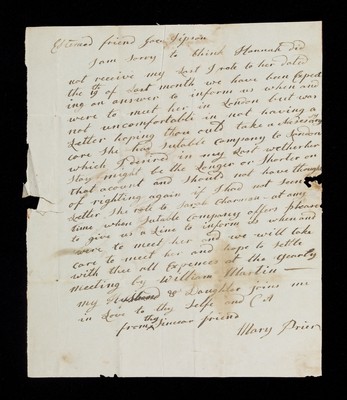 Esteemed friend Geo Gipson
I am Sorry to think Hannah did
not receive my Last I rote to her dated
the 19 of Last month we have been Expect
ing an answer to inform us when and
were to meet her in London but was
not uncomfortable in not having a
Letter hoping thou outs take a Nidering
care She has Sutable Company to London
which I desired in my Last wetherher
Stay might be the Longer or Shorter on
that acount and Should not have thought
of righting again if I had not Seen
Letter She rote to Sarah Charman - at any
time when Sutable Company offers please
to give us a Line to inform us when and
were to meet her and we will take
care to meet her and hope to Settle
with thee all Expences at the yearly
meeting by William Martin —
my Husband & Daughter joins me
in Love to thy Selfe and C A
from thy Sincear friend
Mary Prier